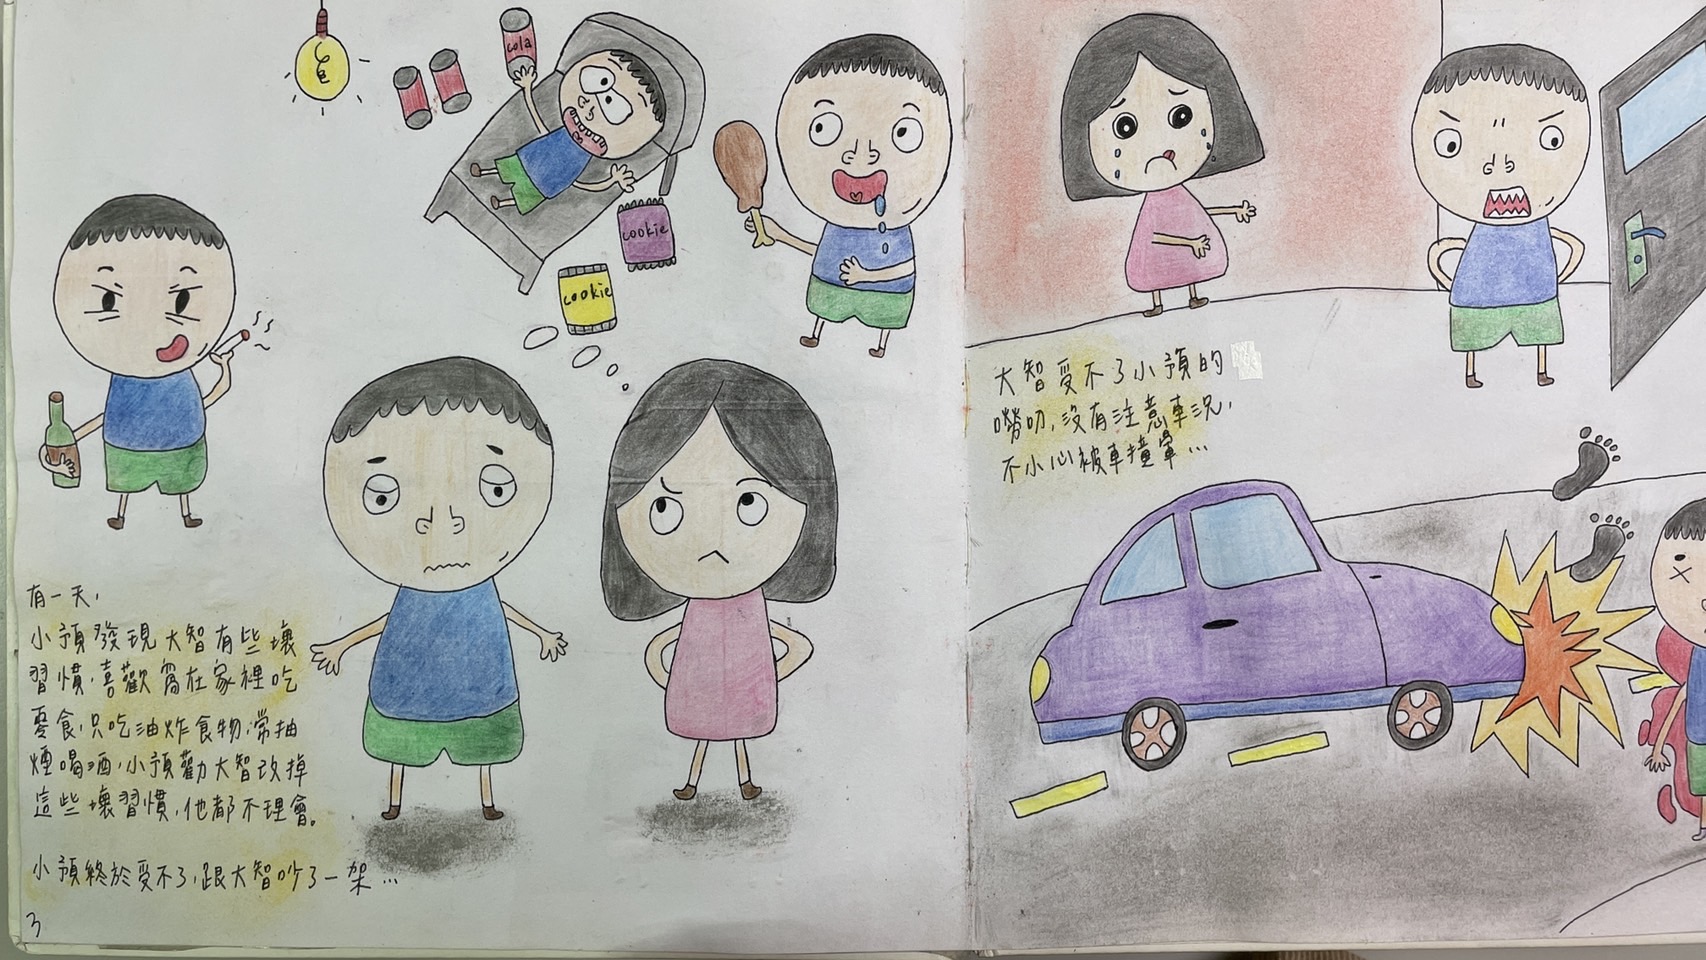 cola
cookie
cookie
有一天,
小預發現大智有些壞
習慣,喜歡窩在家裡吃
零食,只吃油炸食物,常抽
煙喝酒,小預勸大智改掉
這些壞習慣,他都不理會。
小預終於受不了,跟大智吵了一架...
3
大智受不了小預的
嘮叨,沒有注意車況,
不小心被車撞暈...